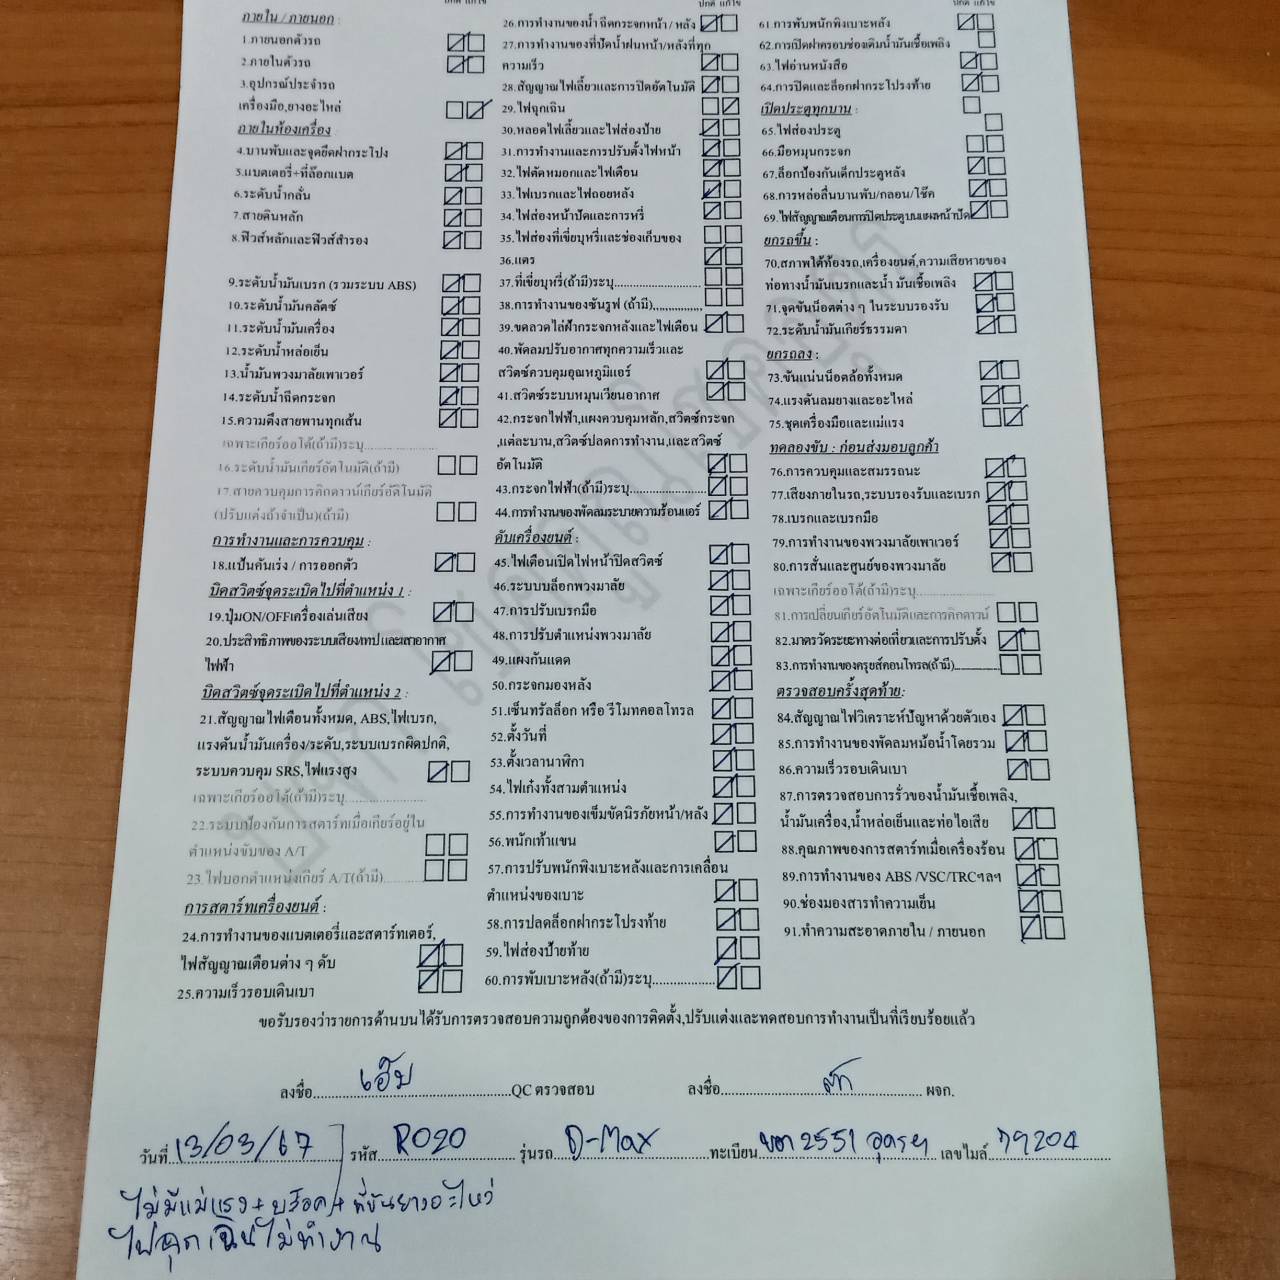 ปกติ แก้ไข
ภายใน / ภายนอก :
1.ภายนอกตัวรถ
2.ภายในตัวรถ
3.อุปกรณ์ประจำรถ
เครื่องมือ,ยางอะไหล่
ภายในห้องเครื่อง
4.บานพับและจุดยึดฝากระโปง
5.แบตเตอรี่+ที่ล๊อกแบต
6.ระดับน้ำกลั่น
7.สายดินหลัก
8.ฟิวส์หลักและฟิวส์สำรอง
9.ระดับน้ำมันเบรก (รวมระบบ ABS)
10.ระดับน้ำมันคลัตช์
11.ระดับน้ำมันเครื่อง
12.ระดับน้ำหล่อเย็น
13.น้ำมันพวงมาลัยเพาเวอร์
14.ระดับน้ำฉีดกระจก
15.ความตึงสายพานทุกเส้น
เฉพาะเกียร์ออโต้(ถ้ามี)ระบุ..................
16.ระดับน้ำมันเกียร์อัตโนมัติ(ถ้ามี)
17.สายควบคุมการคิกดาวน์เกียร์อัติโนมัติ
(ปรับแต่งถ้าจำเป็น)(ถ้ามี)
การทำงานและการควบคุม :
18.แป้นคันเร่ง / การออกตัว
บิดสวิตซ์จุดระเบิดไปที่ตำแหน่ง 1 :
19.ปุ่มON/OFFเครื่องเล่นเสียง
20.ประสิทธิภาพของระบบเสียง/เทป และเสาอากาศ
ไฟฟ้า
บิดสวิตซ์จุดระเบิดไปที่ตำแหน่ง 2 :
21.สัญญาณไฟเตือนทั้งหมด, ABS,ไฟเบรก,
แรงดันน้ำมันเครื่อง/ระดับ,ระบบเบรกผิดปกติ,
ระบบควบคุม SRS,ไฟแรงสูง
เฉพาะเกียร์ออโต้(ถ้ามี)ระบุ..................
22.ระบบป้องกันการสตาร์ทเมื่อเกียร์อยู่ใน
ตำแหน่งขับของ A/T
23.ไฟบอกตำแหน่งเกียร์ A/T(ถ้ามี)..........
การสตาร์ทเครื่องยนต์ :
24.การทำงานของแบตเตอรี่และสตาร์ทเตอร์,
ไฟสัญญาณเตือนต่าง ๆ ดับ
25.ความเร็วรอบเดินเบา
ปกติ แก้ไข
26.การทำงานของน้ำ ฉีดกระจกหน้า / หลัง
27.การทำงานของที่ปัดน้ำฝนหน้า/หลังที่ทุก
ความเร็ว
28.สัญญาณไฟเลี้ยวและการปิดอัตโนมัติ
29.ไฟฉุกเฉิน
30.หลอดไฟเลี้ยวและไฟส่องป้าย
31.การทำงานและการปรับตั้งไฟหน้า
32.ไฟตัดหมอกและไฟเตือน
33.ไฟเบรกและไฟถอยหลัง
34.ไฟส่องหน้าปัดและการหรี่
35.ไฟส่องที่เขี่ยบุหรี่และช่องเก็บของ
36.แตร
37.ที่เขี่ยบุหรี่(ถ้ามี)ระบุ..........................
38.การทำงานของซันรูฟ (ถ้ามี)................
39.ขดลวดไล่ฝ้ากระจกหลังและไฟเตือน
40.พัดลมปรับอากาศทุกความเร็วและ
สวิตช์ควบคุมอุณหภูมิแอร์
41.สวิตซ์ระบบหมุนเวียนอากาศ
42.กระจกไฟฟ้า,แผงควบคุมหลัก,สวิตซ์กระจก
,แต่ละบาน,สวิตซ์ปลดการทำงาน,และสวิตซ์
อัตโนมัติ
43.กระจกไฟฟ้า(ถ้ามี)ระบุ......................
44.การทำงานของพัดลมระบายความร้อนแอร์
ดับเครื่องยนต์ :
45.ไฟเตือนเปิดไฟหน้าปิดสวิตซ์
46.ระบบบล็อกพวงมาลัย
47.การปรับเบรกมือ
48.การปรับตำแหน่งพวงมาลัย
49.แผงกันแดด
50.กระจกมองหลัง
51.เซ็นทรัลล็อก หรือ รีโมทคอลโทรล
52.ตั้งวันที่
53.ตั้งเวลานาฬิกา
54.ไฟเก๋งทั้งสามตำแหน่ง
55.การทำงานของเข็มขัดนิรภัยหน้า/หลัง
56.พนักเท้าแขน
57.การปรับพนักพิงเบาะหลังและการเคลื่อน
ตำแหน่งของเบาะ
58.การปลดล็อกฝากระโปรงท้าย
59.ไฟส่องป้ายท้าย
60.การพับเบาะหลัง(ถ้ามี)ระบุ..................
ปกติ แก้ไข
61.การพับพนักพิงเบาะหลัง
62.การเปิดฝาครอบช่องเติมน้ำมันเชื้อเพลิง
63.ไฟอ่านหนังสือ
64.การปิดและล็อกฝากระโปรงท้าย
เปิดประตูทุกบาน :
65.ไฟส่องประตู
66.มือหมุนกระจก
67.ล็อกป้องกันเด็กประตูหลัง
68.การหล่อลื่นบานพับ/กลอน/โช๊ค
69.ไฟสัญญาณเตือนการปิดประตูบนแผงหน้าปัด
ยกรถขึ้น :
70.สภาพใต้ท้องรถ,เครื่องยนต์,ความเสียหายของ
ท่อทางน้ำมันเบรกและน้ำ มันเชื้อเพลิง
71.จุดขันน็อตต่าง ๆ ในระบบรองรับ
72.ระดับน้ำมันเกียร์ธรรมดา
ยกรถลง :
73.ขันแน่นน็อตล้อทั้งหมด
74.แรงดันลมยางและอะไหล่
75.ชุดเครื่องมือและแม่แรง
ทดลองขับ : ก่อนส่งมอบลูกค้า
76.การควบคุมและสมรรถนะ
77.เสียงภายในรถ,ระบบรองรับและเบรก
78.เบรกและเบรกมือ
79.การทำงานของพวงมาลัยเพาเวอร์
80.การสั่นและศูนย์ของพวงมาลัย
เฉพาะเกียร์ออโต้(ถ้ามี)ระบุ..................
81.การเปลี่ยนเกียร์อัตโนมัติและการคิกดาวน์
82.มาตรวัดระยะทางต่อเที่ยวและการปรับตั้ง
83.การทำงานของครุยส์คอนโทรล(ถ้ามี)..................
ตรวจสอบครั้งสุดท้าย:
84.สัญญาณไฟวิเคราะห์ปัญหาด้วยตัวเอง
85.การทำงานของพัดลมหม้อน้ำโดยรวม
86.ความเร็วรอบเดินเบา
87.การตรวจสอบการรั่วของน้ำมันเชื้อเพลิง,
น้ำมันเครื่อง,น้ำหล่อเย็นและท่อไอเสีย
88.คุณภาพของการสตาร์ทเมื่อเครื่องร้อน
89.การทำงานของ ABS /VSC/TRCฯลฯ
90.ช่องมองสารทำความเย็น
91.ทำความสะอาดภายใน / ภายนอก
ขอรับรองว่ารายการด้านบนได้รับการตรวจสอบความถูกต้องของการติดตั้ง,ปรับแต่งและทดสอบการทำงานเป็นที่เรียบร้อยแล้ว
ลงชื่อ เอ๊บ QC ตรวจสอบ ลงชื่อ ผจก.
วันที่ 13/03/67 รหัส R020 รุ่นรถ D-Max ทะเบียน 2551 อุดรฯ เลขไมล์ 79204
ไม่มีแม่แรง+บล๊อค+ที่ขันยางอะไหล่
ไฟฉุกเฉินไม่ทำงาน